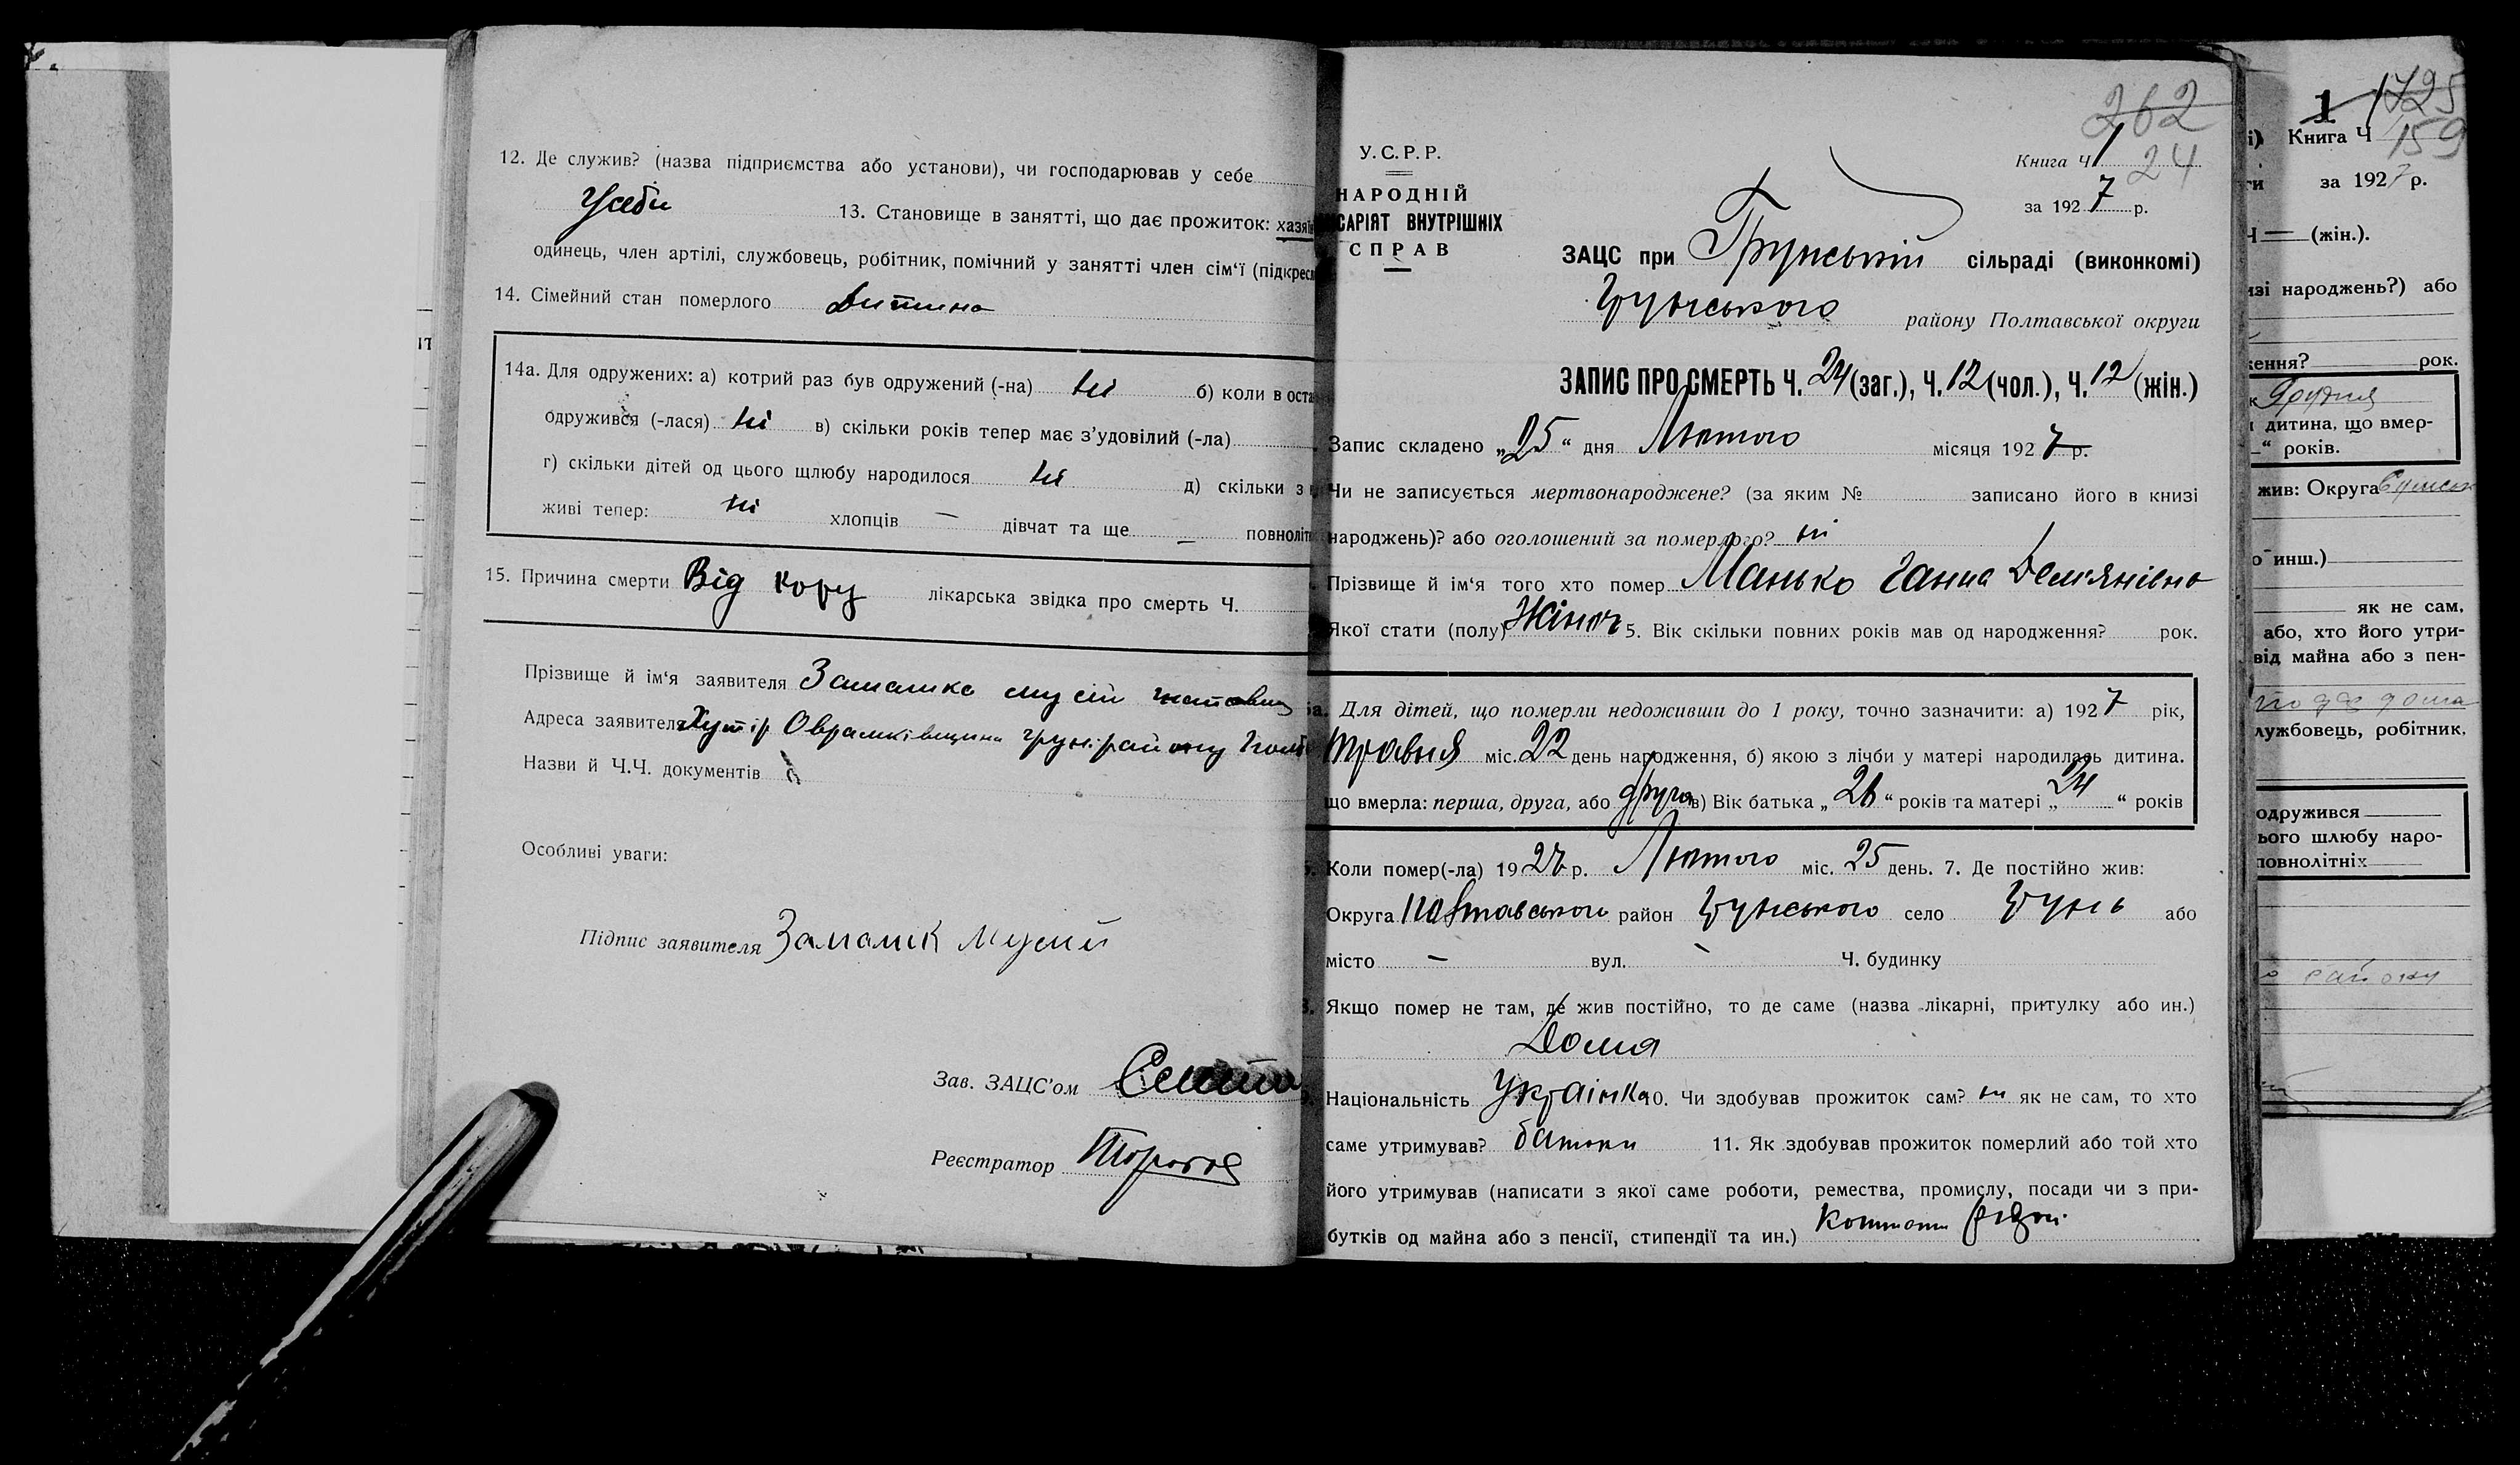 12. Де служив? (назва підприємства або установи), чи господарював у себе
Усебе 13. Становище в занятті, що дає прожиток: хазяїн
одинець, член артілі, службовець, робітник, помічний у занятті член сім'ї (підкресл
14. Сімейний стан померлого Дитина
14а. Для одружених: а) котрий раз був одружений (-на) ні б) коли в оста
одружився (-лася) ні в) скільки років тепер має з'удовілий (-ла)
г) скільки дітей од цього шлюбу народилося ні д) скільки з
живі тепер: ні хлопців — дівчат та ще — повноліт
15. Причина смерти Від кору лікарська звідка про смерть Ч.
Прізвище й ім'я заявителя
Адреса заявителя Хутір Оврамківщина грун. району
Назви й Ч.Ч. документів
Особливі уваги:
Підпис заявителя
Зав. ЗАЦС'ом
Реєстратор
262
У.С.Р.Р.
Книга Ч 1 24
НАРОДНІЙ
за 1927 р.
САРІЯТ ВНУТРІШНІХ
СПРАВ
ЗАЦС при Грунській сільраді (виконкомі)
Грунського району Полтавської округи
ЗАПИС ПРО СМЕРТЬ Ч. 24 (заг.), Ч. 12 (чол.), Ч. 12 (жін.)
Запис складено „25“ дня Лютого місяця 1927 р.
Чи не записується мертвонароджене? (за яким № записано його в книзі
народжень)? або оголошений за померлого? ні
Прізвище й ім'я того хто помер Манько Ганна Демянівна
Якої стати (полу) Жіноч 5. Вік скільки повних років мав од народження? рок.
5а. Для дітей, що померли недоживши до 1 року, точно зазначити: а) 1927 рік,
травня міс. 22 день народження, б) якою з лічби у матері народилась дитина.
що вмерла: перша, друга, або друга в) Вік батька „26“ років та матері „24“ років
Коли помер(-ла) 1927 р. Лютого міс. 25 день. 7. Де постійно жив:
Округа Полтавського район Грунського село Грунь або
місто — вул. - Ч. будинку
Якщо помер не там, де жив постійно, то де саме (назва лікарні, притулку або ин.)
Дома
Національність Українка 10. Чи здобував прожиток сам? ні як не сам, то хто
саме утримував? батьки 11. Як здобував прожиток померлий або той хто
його утримував (написати з якої саме роботи, ремества, промислу, посади чи з при-
бутків од майна або з пенсії, стипендії та ин.)
1 1725
Книга Ч 159
за 1927 р.
— (жін.).
зі народжень?) або
ення? рок.
Грудня
дитина, що вмер-
“ років.
жив: Округа
о инш.)
як не сам,
або, хто його утри-
від майна або з пен-
лужбовець, робітник,
одружився
ього шлюбу наро-
повнолітніх
району